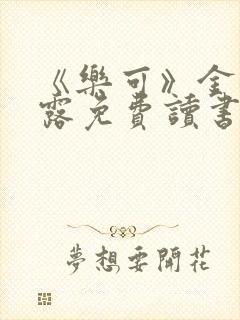 《樂可》金
露免費讀書
夢想要開花